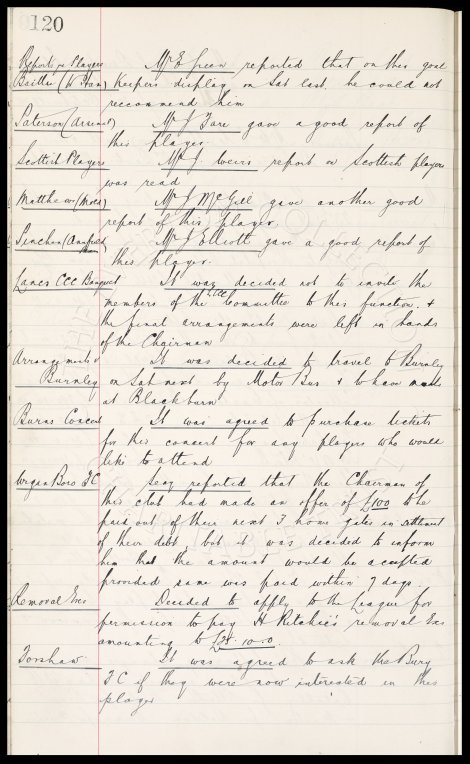 120
Reports re Players Mr E Green reported that on this goal
Baittie (W Ham) Keepers display on Sat last he could not
recommend him
Paterson (Arsenal) Mr J Fare gave a good report of
this player
Scottish Players Mr J Weirs report on Scottish players
was read
Matthews (Mold) Mr J McGill gave another good
report of this player
Linehan (Annfield Plain) Mr J Elliott gave a good report of
this player.
Lancs CCC Banquet It was decided not to invite the
members of the LCCC Committee to this function, &
the final arrangements were left in hands
of the Chairman
Arrangements v It was decided to travel to Burnley
Burnley on Sat next by Motor Bus & to have meals
at Blackburn
Burns Concert It was agreed to purchase tickets
for this concert for any players who would
like to attend
Wigan Boro FC Secy reported that the Chairman of
this club had made an offer of £100 to be
paid out of their next 3 home gates in settlement
of their debt, but it was decided to inform
him that the amount would be accepted
provided same was paid within 7 days.
Removal Exs Decided to apply to the League for
permission to pay H Ritchie's removal Exs
amounting to
Forshaw It was agreed to ask the Bury
FC if they were now interested in this
player